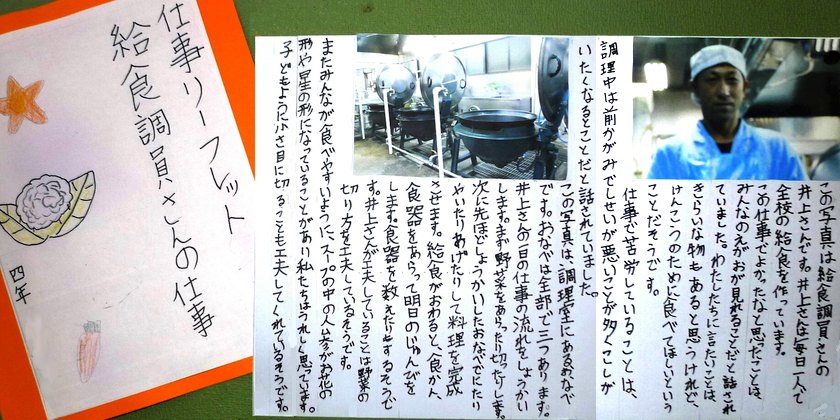 仕事リーフレット
給食調員さんの仕事
四年
この写真は給食調員さんの
井上さんです。井上さんは毎日一人で
全校の給食を作っています。
この仕事でよかったなと思ったことは、
みんなのえがおが見れることだと話され
ていました。わたしたちに言たいことは、
きらいな物もあると思うけれど、
けんこうのために食べてほしいという
ことだそうです。
仕事で苦労していることは、
調理中は前かがみでしせいが悪いことが多くこしが
いたくなることだと話されていました。
この写真は、調理室にあるおなべ
です。おなべは全部で三つあります。
井上さんの一日の仕事の流れをしょうかい
します。まず野菜をあらったり切ったりします。
次に先ほどしょうかいしたおなべでにたり
やいたりあげたりして料理を完成
させます。給食がおわると、食かん、
食器をあらって明日のじゅんびを
します。食器を数えたりもするそうで
す。井上さんが工夫していることは野菜の
切り方を工夫しているそうです。
またみんなが食べやすいように、スープの中の人参がお花の
形や星の形になっていることがあり私たちはうれしく思ってます。
子どもように小さ目に切ることも工夫してくれているそうです。